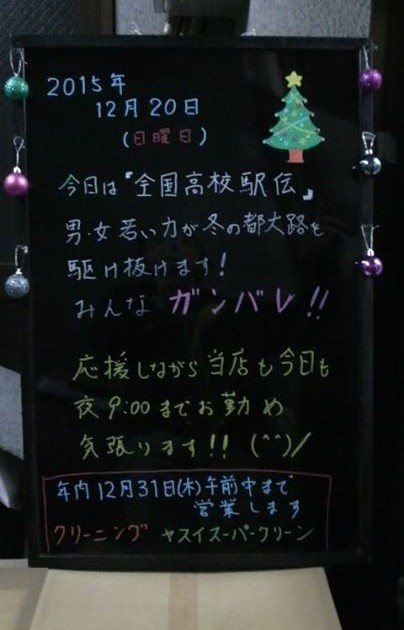 2015年
12月20日
(日曜日)
今日は『全国高校駅伝』
男・女若い力が冬の都大路を
駆け抜けます!
みんな ガンバレ!!
応援しながら当店も今日も
夜9:00までお勤め
気張ります!! (^^)/
年内12月31日(木)午前中まで
営業します
クリーニング ヤスイスーパークリーン